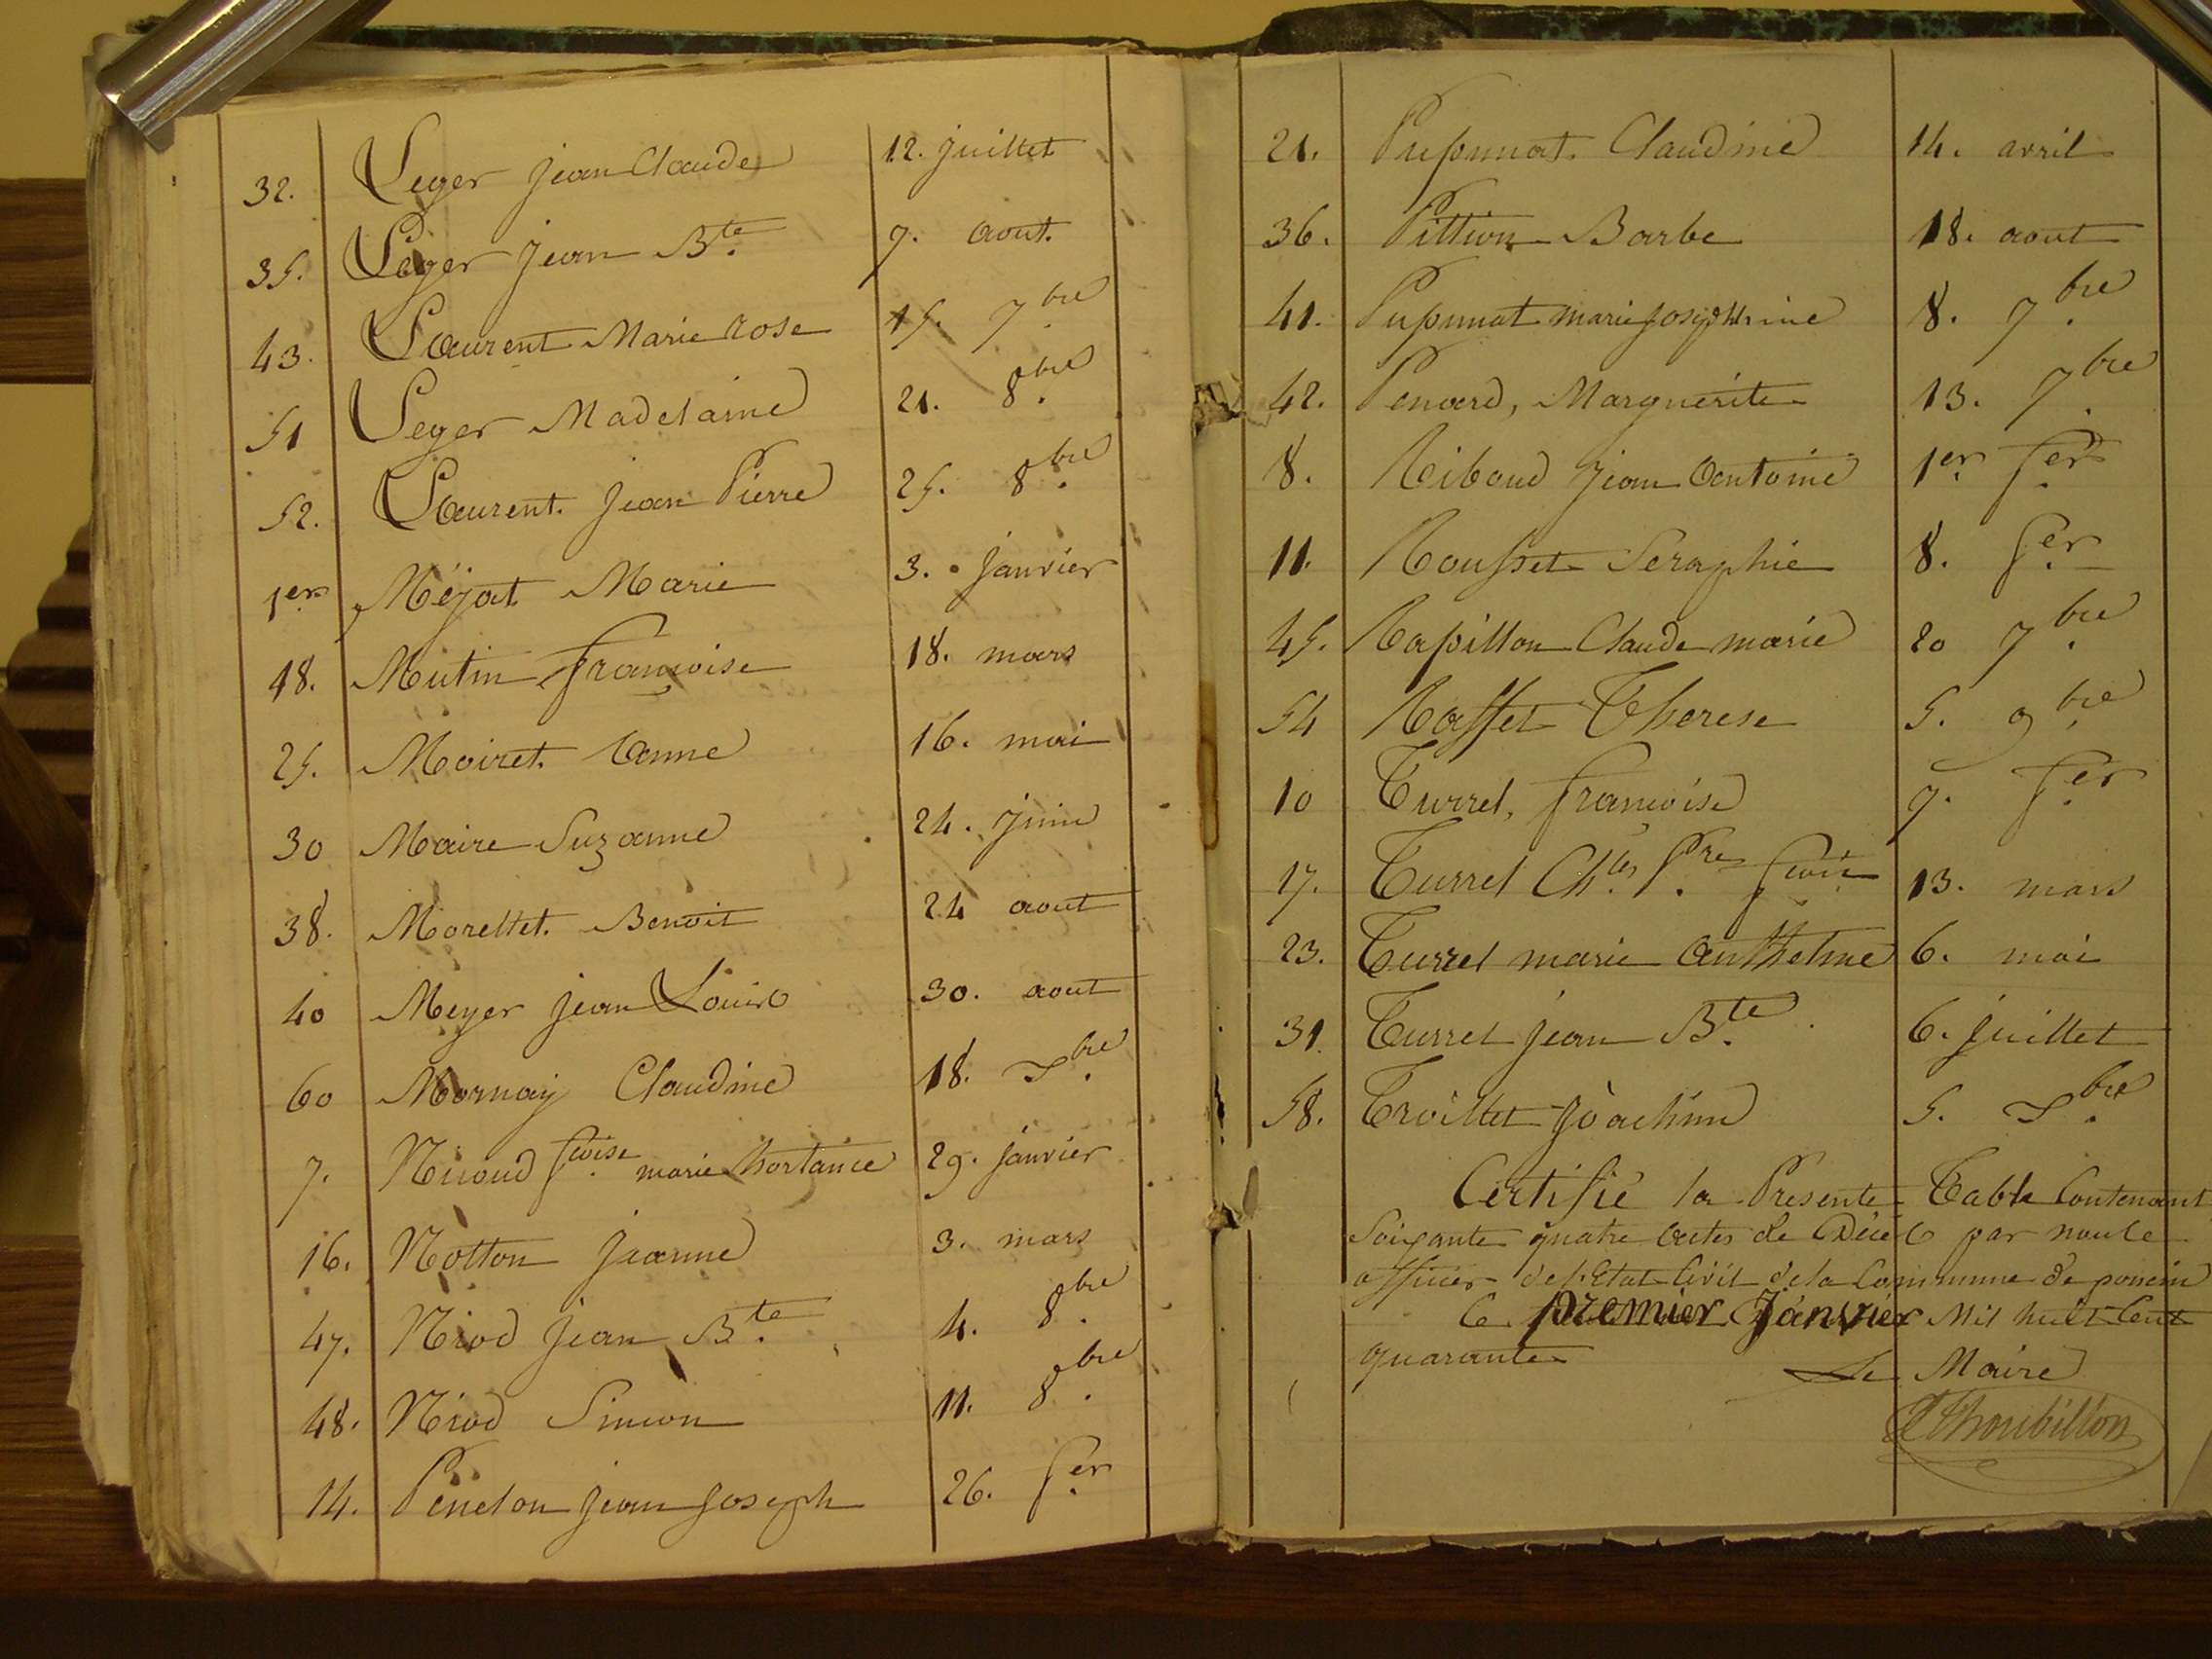 32. Leger jean Claude 12. juillet
35. Leger jean Bte. 9. aout.
43. Laurent Marie rose 15. 7bre
51 Leger Madelaine 21. 8bre
52. Laurent. jean Pierre 25. 8bre
1er Méjat Marie 3. janvier
18. Mutin françoise 18. mars
25. Moiret. anne 16. mai
30 Maire Suzanne 24. juin
38. Morellet. Benoit 24 aout
40 Meyer jean Louis 30. aout
60 Mornay Claudine 18. Xbre
7. Niroud foise marie hortance 29. janvier
16. Notton jeanne 3. mars
47. Niod jean Bte. 4. 8bre
48. Niod Simon 11. 8bre
14. Penelon jean joseph 26. fer
21. Pupunat. Claudine 14. avril
36. Pittion Barbe 18. aout
41. Pupunat marie josephine 8. 7bre
42. Penard, Marguerite 13. 7bre
8. Riboud jean antoine 1er fer
11. Rousset Seraphie 8. fer
45. Rapillon Claude marie 20 7bre
54 Raffet Therese 5. 9bre
10 Turrel, françoise 9. fer
17. Turrel Chles Pre fcois 13. mars
23. Turrel marie anthelme 6. mai
31. Turrel jean Bte. 6. juillet
58. Troillet joachim 5. Xbre
Certifié la Présente Table Contenant
Soixante quatre actes de Décès par nous le
officier de l'Etat Civil de la Commune de poncin
le premier Janvier Mil huit Cent
quarante
Le Maire